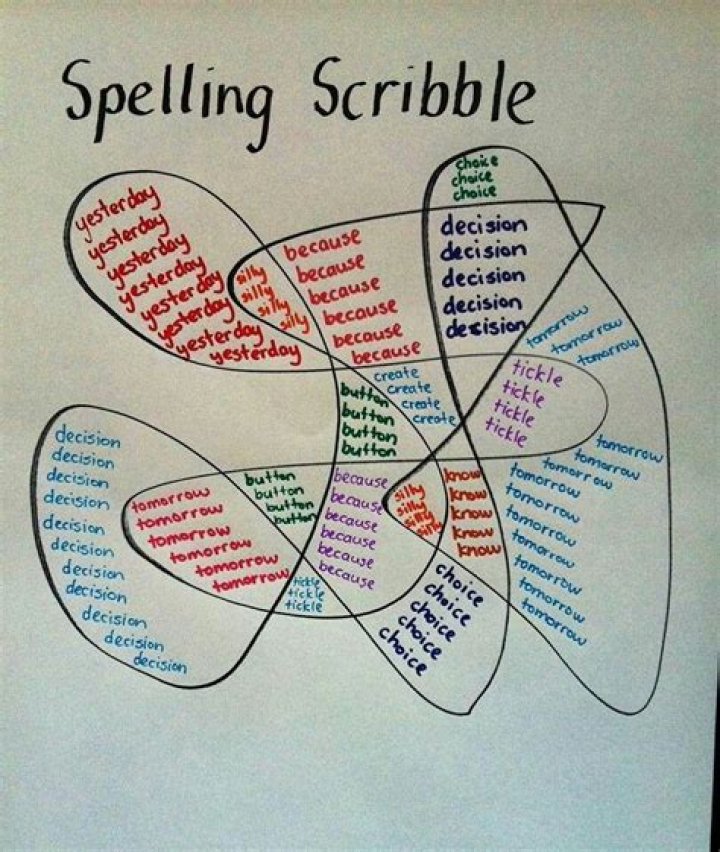 Spelling Scribble
choice
choice
choice
yesterday
yesterday
yesterday
yesterday
yesterday
yesterday
yesterday
yesterday
silly
silly
silly
silly
because
because
because
because
because
because
decision
decision
decision
decision
decision
tomorrow
tomorrow
tomorrow
create
create
create
create
tickle
tickle
tickle
tickle
button
button
button
button
tomorrow
tomorrow
tomorrow
tomorrow
tomorrow
tomorrow
tomorrow
tomorrow
tomorrow
tomorrow
decision
decision
decision
decision
decision
decision
decision
decision
decision
decision
decision
button
button
button
button
tomorrow
tomorrow
tomorrow
tomorrow
tomorrow
tomorrow
because
because
because
because
because
because
silly
silly
silly
silly
know
know
know
know
know
tickle
tickle
tickle
choice
choice
choice
choice
choice